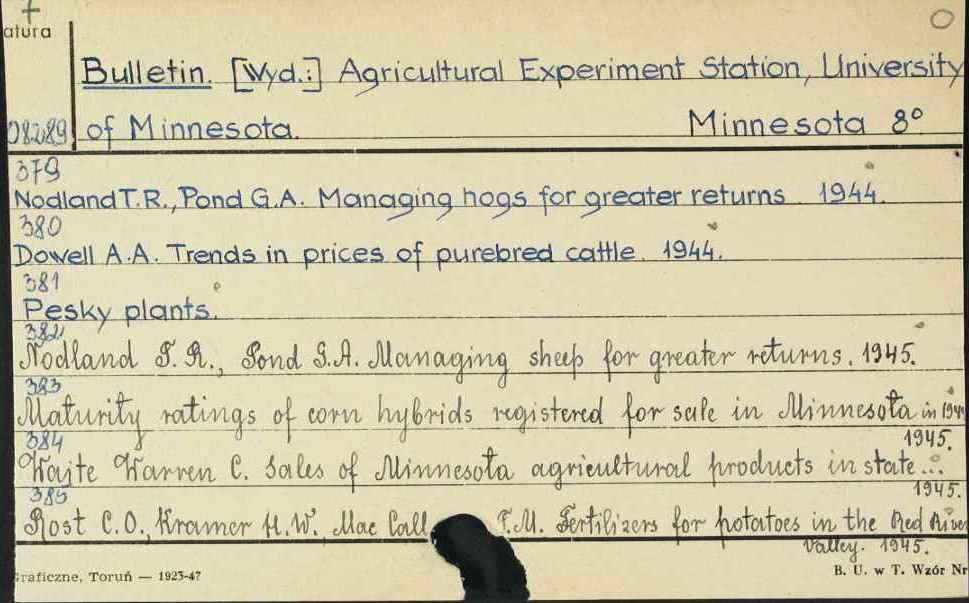 atura
Bulletin. [Wyd.:] Agricultural Experiment Station, University
08289 of Minnesota. Minnesota 8°
379
Nodland T.R., Pond G.A. Managing hogs for greater returns 1944.
380
Dowell A.A. Trends in prices of purebred cattle. 1944.
381
Pesky plants.
382
Nodland T. R., Pond G.A. Managing sheep for greater returns. 1945.
383
Maturity ratings of corn hybrids registered for sale in Minnesota in 1944
384 1945.
Waite Warren C. Sales of Minnesota agricultural products in state...
385 1945.
Rost C.O., Kramer H.W. Mac Call F.M. Fertilizers for potatoes in the Red River
Valley. 1945.
raficzne, Toruń — 1923-47 B. U. w T. Wzór Nr